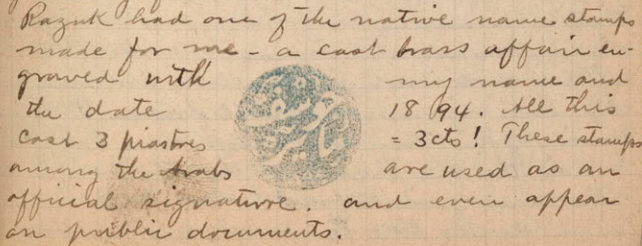 Razuk had one of the native name stamps
made for me - a cast brass affair en-
graved with my name and
the date 1894. All this
cost 3 piastres = 3cts! These stamps
among the Arabs are used as an
official signature. and even appear
on public documents.